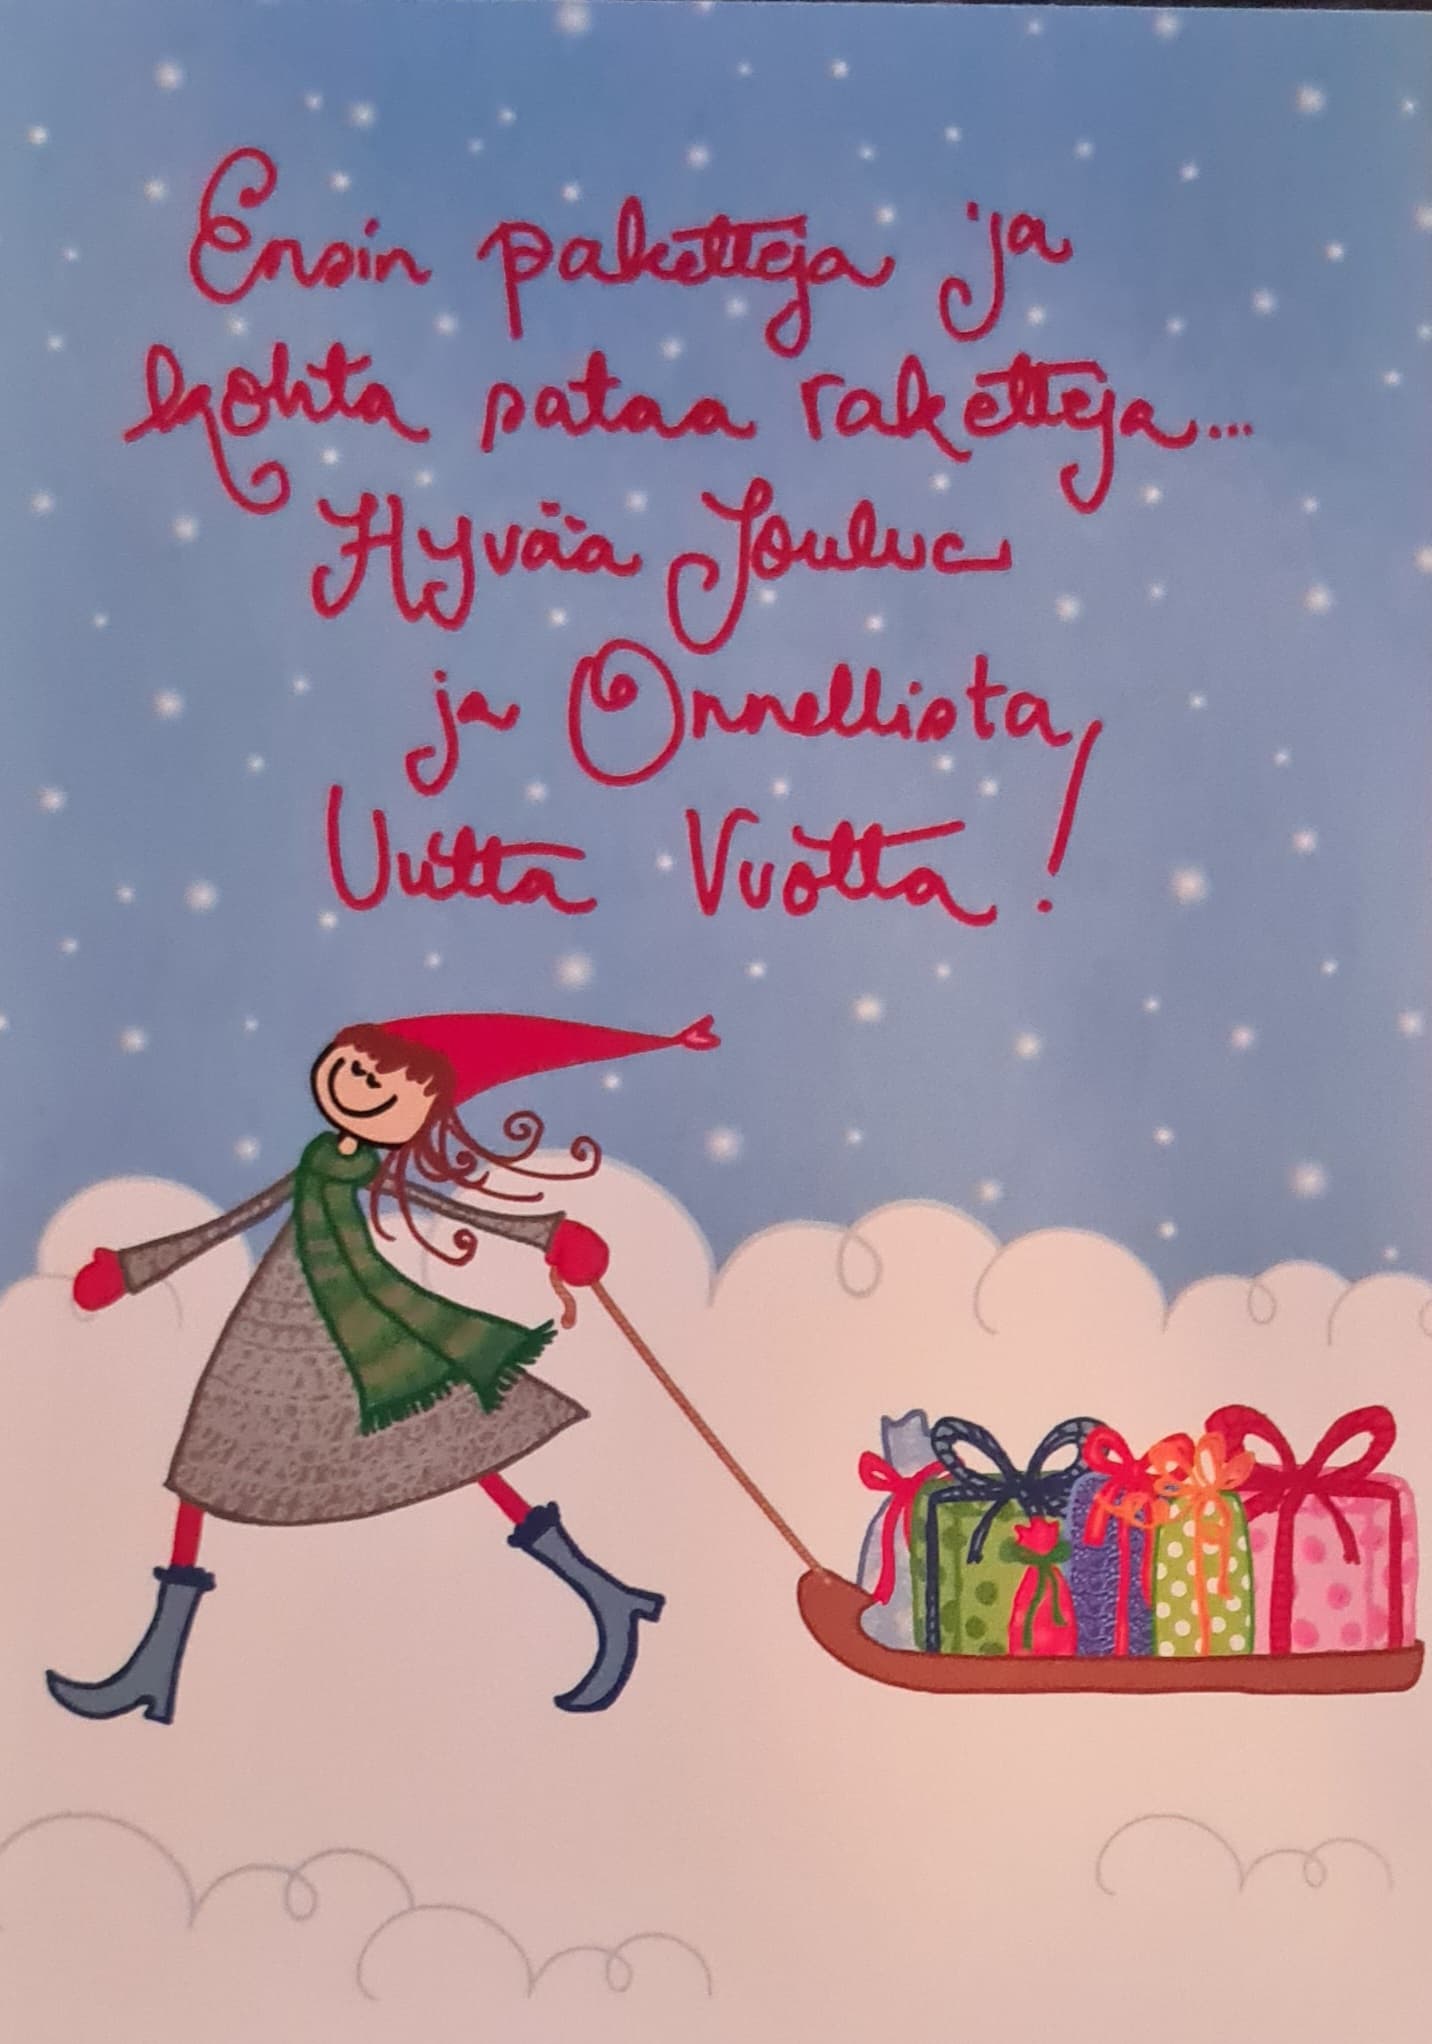 Ensin paketteja ja
kohta sataa raketteja...
Hyvää Joulua
ja Onnellista
Uutta Vuotta!